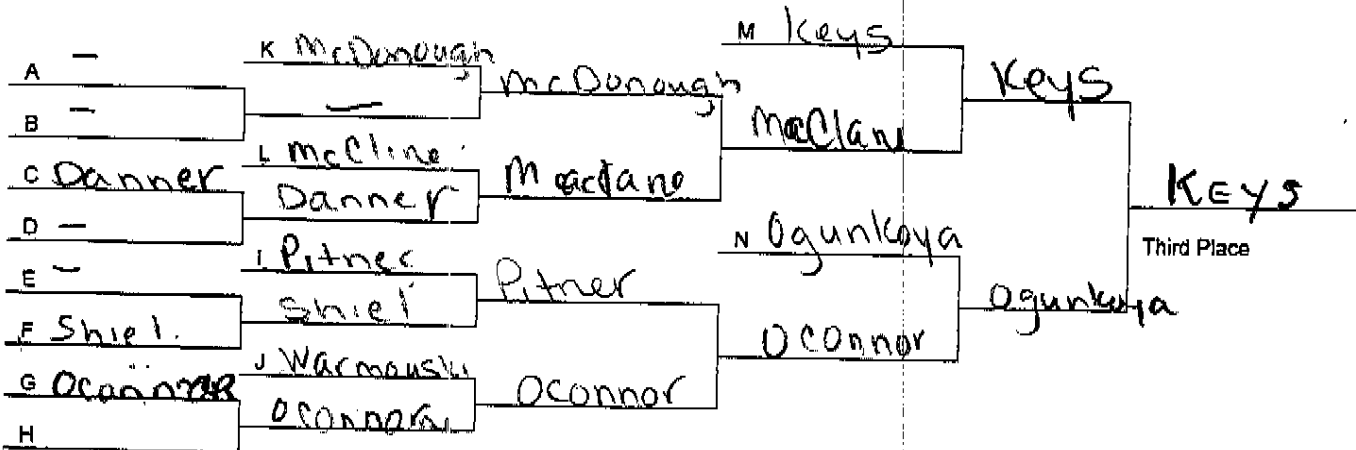 A –
B –
C Danner
D –
E –
F Shiel.
G Oconnor
H
K McDonough
–
L McCline
Danner
I Pitner
Shiel
J Warmouski
Oconnor
McDonough
Pitner
Oconnor
M Keys
McClane
N Ogunkoya
OConnor
Keys
Ogunkoya
KEYS
Third Place